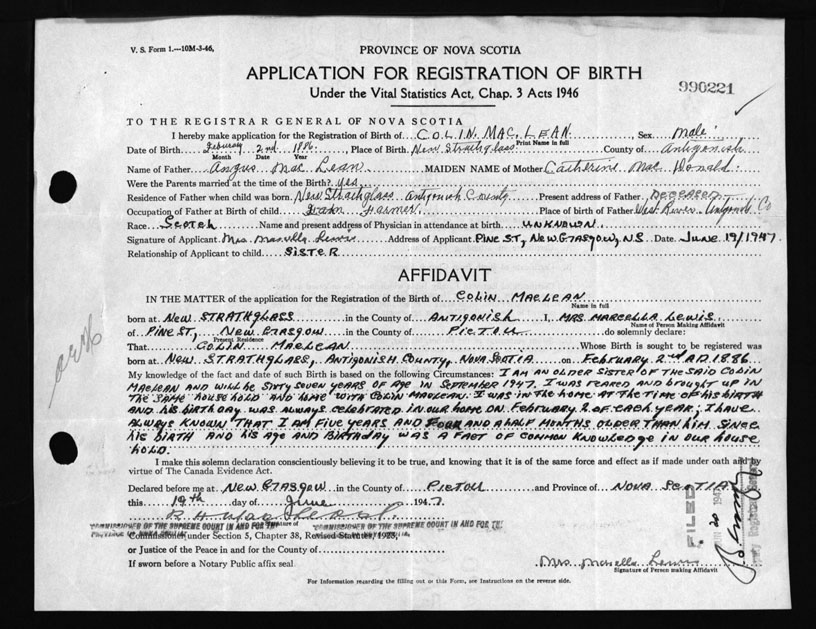 V. S. Form 1.—10M-3-46,
PROVINCE OF NOVA SCOTIA
APPLICATION FOR REGISTRATION OF BIRTH
990221
Under the Vital Statistics Act, Chap. 3 Acts 1946
TO THE REGISTRAR GENERAL OF NOVA SCOTIA
I hereby make application for the Registration of Birth of COLIN MAC LEAN Sex Male
Print Name in full
Date of Birth February 2nd 1886, Place of Birth New Strathglass County of Antigonish
Month Date Year
Name of Father Angus Mac Lean MAIDEN NAME of Mother Catherine Mac Donald
Were the Parents married at the time of the Birth? Yes
Residence of Father when child was born New Strathglass Antigonish County Present address of Father DECEASED
Occupation of Father at Birth of child Farmer Place of birth of Father West River Antigonish Co
Race Scotch Name and present address of Physician in attendance at birth UNKNOWN
Signature of Applicant Mrs Marcella Lewis Address of Applicant PINE ST, NEW GLASGOW, N.S Date June 19/1947
Relationship of Applicant to child SISTER
AFFIDAVIT
IN THE MATTER of the application for the Registration of the Birth of COLIN MACLEAN
Name in full
born at NEW STRATHGLASS in the County of ANTIGONISH I, MRS. MARCELLA LEWIS
Name of Person Making Affidavit
of PINE ST, NEW GLASGOW in the County of PICTOU do solemnly declare:
Present Residence
That COLIN MACLEAN Whose Birth is sought to be registered was
born at NEW STRATHGLASS, ANTIGONISH COUNTY, NOVA SCOTIA on FEBRUARY 2nd A.D. 1886
My knowledge of the fact and date of such Birth is based on the following Circumstances: I AM AN OLDER SISTER OF THE SAID COLIN
MACLEAN AND WILL BE SIXTY SEVEN YEARS OF AGE IN SEPTEMBER 1947. I WAS REARED AND BROUGHT UP IN
THE SAME HOUSE HOLD AND HOME WITH COLIN MACLEAN. I WAS IN THE HOME AT THE TIME OF HIS BIRTH
AND HIS BIRTHDAY WAS ALWAYS CELEBRATED IN OUR HOME ON FEBRUARY 2 OF EACH YEAR; I HAVE
ALWAYS KNOWN THAT I AM FIVE YEARS AND FOUR AND A HALF MONTHS OLDER THAN HIM. SINCE
HIS BIRTH AND HIS AGE AND BIRTHDAY WAS A FACT OF COMMON KNOWLEDGE IN OUR HOUSE
HOLD.
I make this solemn declaration conscientiously believing it to be true, and knowing that it is of the same force and effect as if made under oath and by
virtue of The Canada Evidence Act.
Declared before me at NEW GLASGOW in the County of PICTOU and Province of NOVA SCOTIA
this 19th day of June 1947
Signature of
COMMISSIONER OF THE SUPREME COURT IN AND FOR THE COMMISSIONER OF THE SUPREME COURT IN AND FOR THE
Commissioner under Section 5, Chapter 38, Revised Statutes 1923,
or Justice of the Peace in and for the County of
If sworn before a Notary Public affix seal
Mrs Marcella Lewis
Signature of Person making Affidavit
For Information regarding the filling out of this Form, see Instructions on the reverse side.
FILED